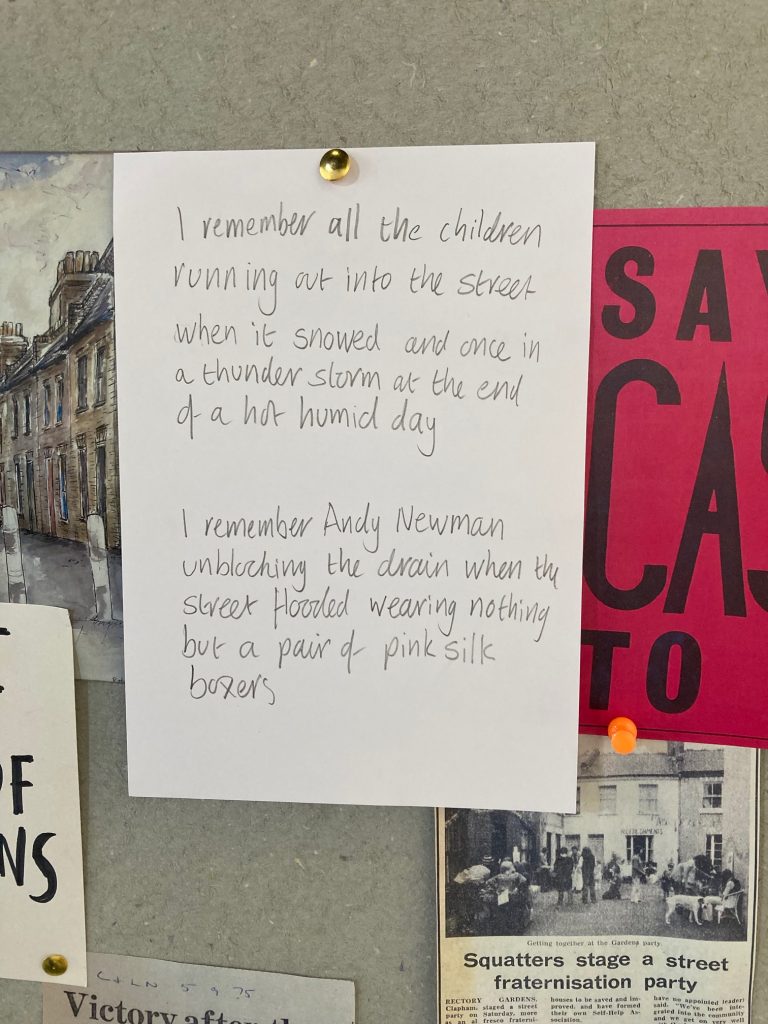 I remember all the children
running out into the street
when it snowed and once in
a thunder storm at the end
of a hot humid day
I remember Andy Newman
unblocking the drain when the
street flooded wearing nothing
but a pair of pink silk
boxers
SAY
CAS
TO
OF
NS
Getting together at the Gardens party.
Squatters stage a street
fraternisation party
RECTORY GARDENS,
Clapham, staged a street
party on Saturday, more
as an al fresco fraterni-
houses to be saved and im-
proved, and have formed
their own Self-Help As-
sociation.
have no appointed leader
said. "We've been inte-
grated into the community
and we get on very well
C & LN 5 9 75
Victory after the